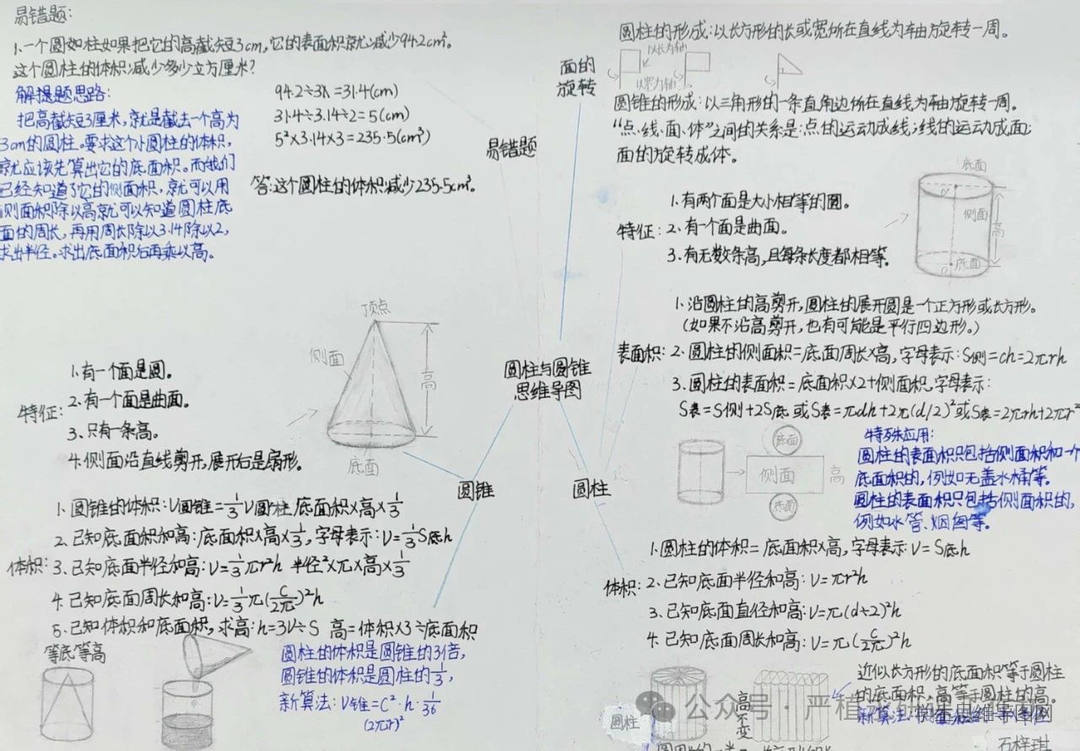 易错题:
1.一个圆如柱如果把它的高截短3cm,它的表面积就减少94.2cm²。
这个圆柱的体积减少多少立方厘米?
解提题思路:
把高截短3厘米,就是截去一个高为
3cm的圆柱。要求这个小圆柱的体积,
就尤应该先算出它的底面积。而我们
已经知道了它的侧面积,就可以用
侧面积除以高就可以知道圆柱底
面的周长,再用周长除以3.14除以2,
求出半径。求出底面积后再乘以高。
94.2÷3=31.4(cm)
31.4÷3.14÷2=5(cm)
5²×3.14×3=235.5(cm³)
答:这个圆柱的体积减少235.5cm³。
易错题
面的
旋转
圆柱的形成:以长方形的长或宽所在直线为轴旋转一周。
以长为轴
以宽为轴
圆锥的形成:以三角形的一条直角边所在直线为轴旋转一周。
“点、线、面、体”之间的关系是:点的运动成线;线的运动成面;
面的旋转成体。
圆柱与圆锥
思维导图
圆柱
特征:
1.有两个面是大小相等的圆。
2.有一个面是曲面。
3.有无数条高,且每条长度都相等。
底面
侧面
高
底面
表面积:
1.沿圆柱的高剪开,圆柱的展开图是一个正方形或长方形。
(如果不沿高剪开,也有可能是平行四边形。)
2.圆柱的侧面积=底面周长×高,字母表示:S侧=ch=2πrh
3.圆柱的表面积=底面积×2+侧面积,字母表示:
S表=S侧+2S底 或S表=πdh+2π(d/2)²或S表=2πrh+2πr²
底面
侧面
高
底面
特殊应用:
圆柱的表面积只包括侧面积和一个
底面积的,例如无盖水桶等。
圆柱的表面积只包括侧面积的,
例如水管、烟囱等。
体积:
1.圆柱的体积=底面积×高,字母表示:V=S底h
2.已知底面半径和高:V=πr²h
3.已知底面直径和高:V=π(d÷2)²h
4.已知底面周长和高:V=π(C/2π)²h
高
不
变
圆柱
近似长方形的底面积等于圆柱
的底面积,高等于圆柱的高。
新算法:
石梓琪
圆锥
特征:
1.有一个面是圆。
2.有一个面是曲面。
3.只有一条高。
4.侧面沿直线剪开,展开后是扇形。
顶点
侧面
高
底面
体积:
1.圆锥的体积:V圆锥=1/3V圆柱 底面积×高×1/3
2.已知底面积和高:底面积×高×1/3,字母表示:V=1/3S底h
3.已知底面半径和高:V=1/3πr²h 半径²×π×高×1/3
4.已知底面周长和高:V=1/3π(C/2π)²h
5.已知体积和底面积,求高:h=3V÷S 高=体积×3÷底面积
等底等高
圆柱的体积是圆锥的3倍,
圆锥的体积是圆柱的1/3,
新算法:V锥=C²·h·1/36
(2πr)²
公众号·严植
思维导图网